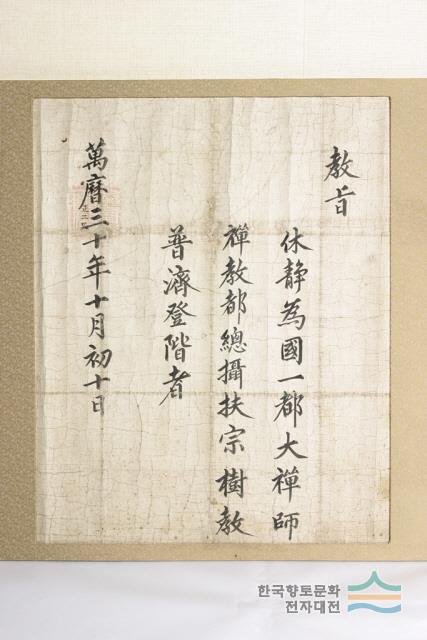 教旨
休静為國一都大禪師
禪教都總攝扶宗樹教
普濟登階者
萬曆三十年十月初十日
한국향토문화
전자대전